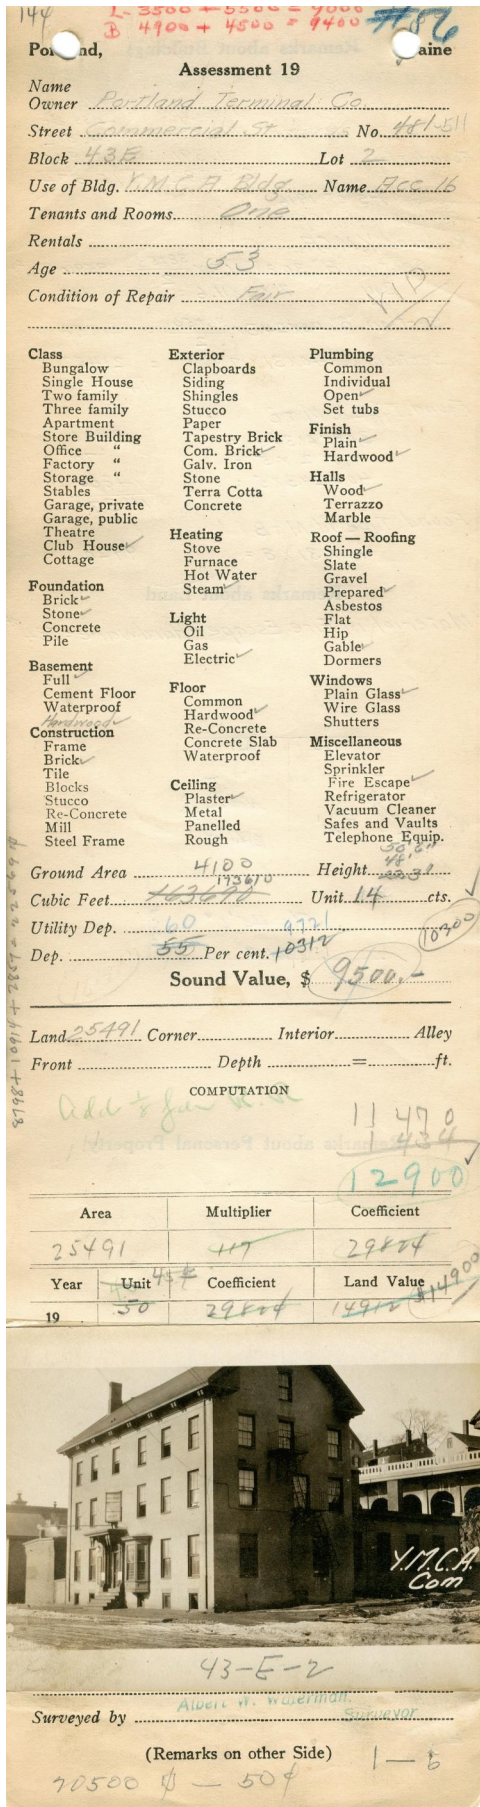 144
L- 3500 + 5500 = 9000
B 4900 + 4500 = 9400
#86
Portland, Maine
Assessment 19
Name
Owner Portland Terminal Co.
Street Commercial St. No. 481-511
Block 43E Lot 2
Use of Bldg. Y.M.C.A Bldg. Name Acc 16
Tenants and Rooms One
Rentals
Age 53
Condition of Repair Fair
Class
Bungalow
Single House
Two family
Three family
Apartment
Store Building
Office "
Factory "
Storage "
Stables
Garage, private
Garage, public
Theatre
Club House ✓
Cottage
Foundation
Brick ✓
Stone ✓
Concrete
Pile
Basement
Full ✓
Cement Floor
Waterproof
Hardwood ✓
Construction
Frame
Brick ✓
Tile
Blocks
Stucco
Re-Concrete
Mill
Steel Frame
Exterior
Clapboards
Siding
Shingles
Stucco
Paper
Tapestry Brick
Com. Brick ✓
Galv. Iron
Stone
Terra Cotta
Concrete
Heating
Stove
Furnace
Hot Water
Steam ✓
Light
Oil
Gas
Electric ✓
Floor
Common
Hardwood ✓
Re-Concrete
Concrete Slab
Waterproof
Ceiling
Plaster ✓
Metal
Panelled
Rough
Plumbing
Common
Individual
Open ✓
Set tubs
Finish
Plain ✓
Hardwood ✓
Halls
Wood ✓
Terrazzo
Marble
Roof — Roofing
Shingle
Slate
Gravel
Prepared ✓
Asbestos
Flat
Hip
Gable ✓
Dormers
Windows
Plain Glass ✓
Wire Glass
Shutters
Miscellaneous
Elevator
Sprinkler
Fire Escape ✓
Refrigerator
Vacuum Cleaner
Safes and Vaults
Telephone Equip.
Ground Area 4100 Height
173610
Cubic Feet 163690 Unit 14 cts.
Utility Dep. 60 9721
10300
Dep. 55 Per cent. 10312
Sound Value, $ 9500.-
Land 25491 Corner Interior Alley
Front Depth = ft.
8798 + 10914 + 2857 = 22569
COMPUTATION
Add 1/8 for R.R
11470
1434
12900
Area Multiplier Coefficient
25491 117 29824
Year Unit 45¢ Coefficient Land Value $14900
19 50 29824 14912
Y.M.C.A.
Com
43-E-2
Surveyed by Albert W. Waterman.
Surveyor
(Remarks on other Side)